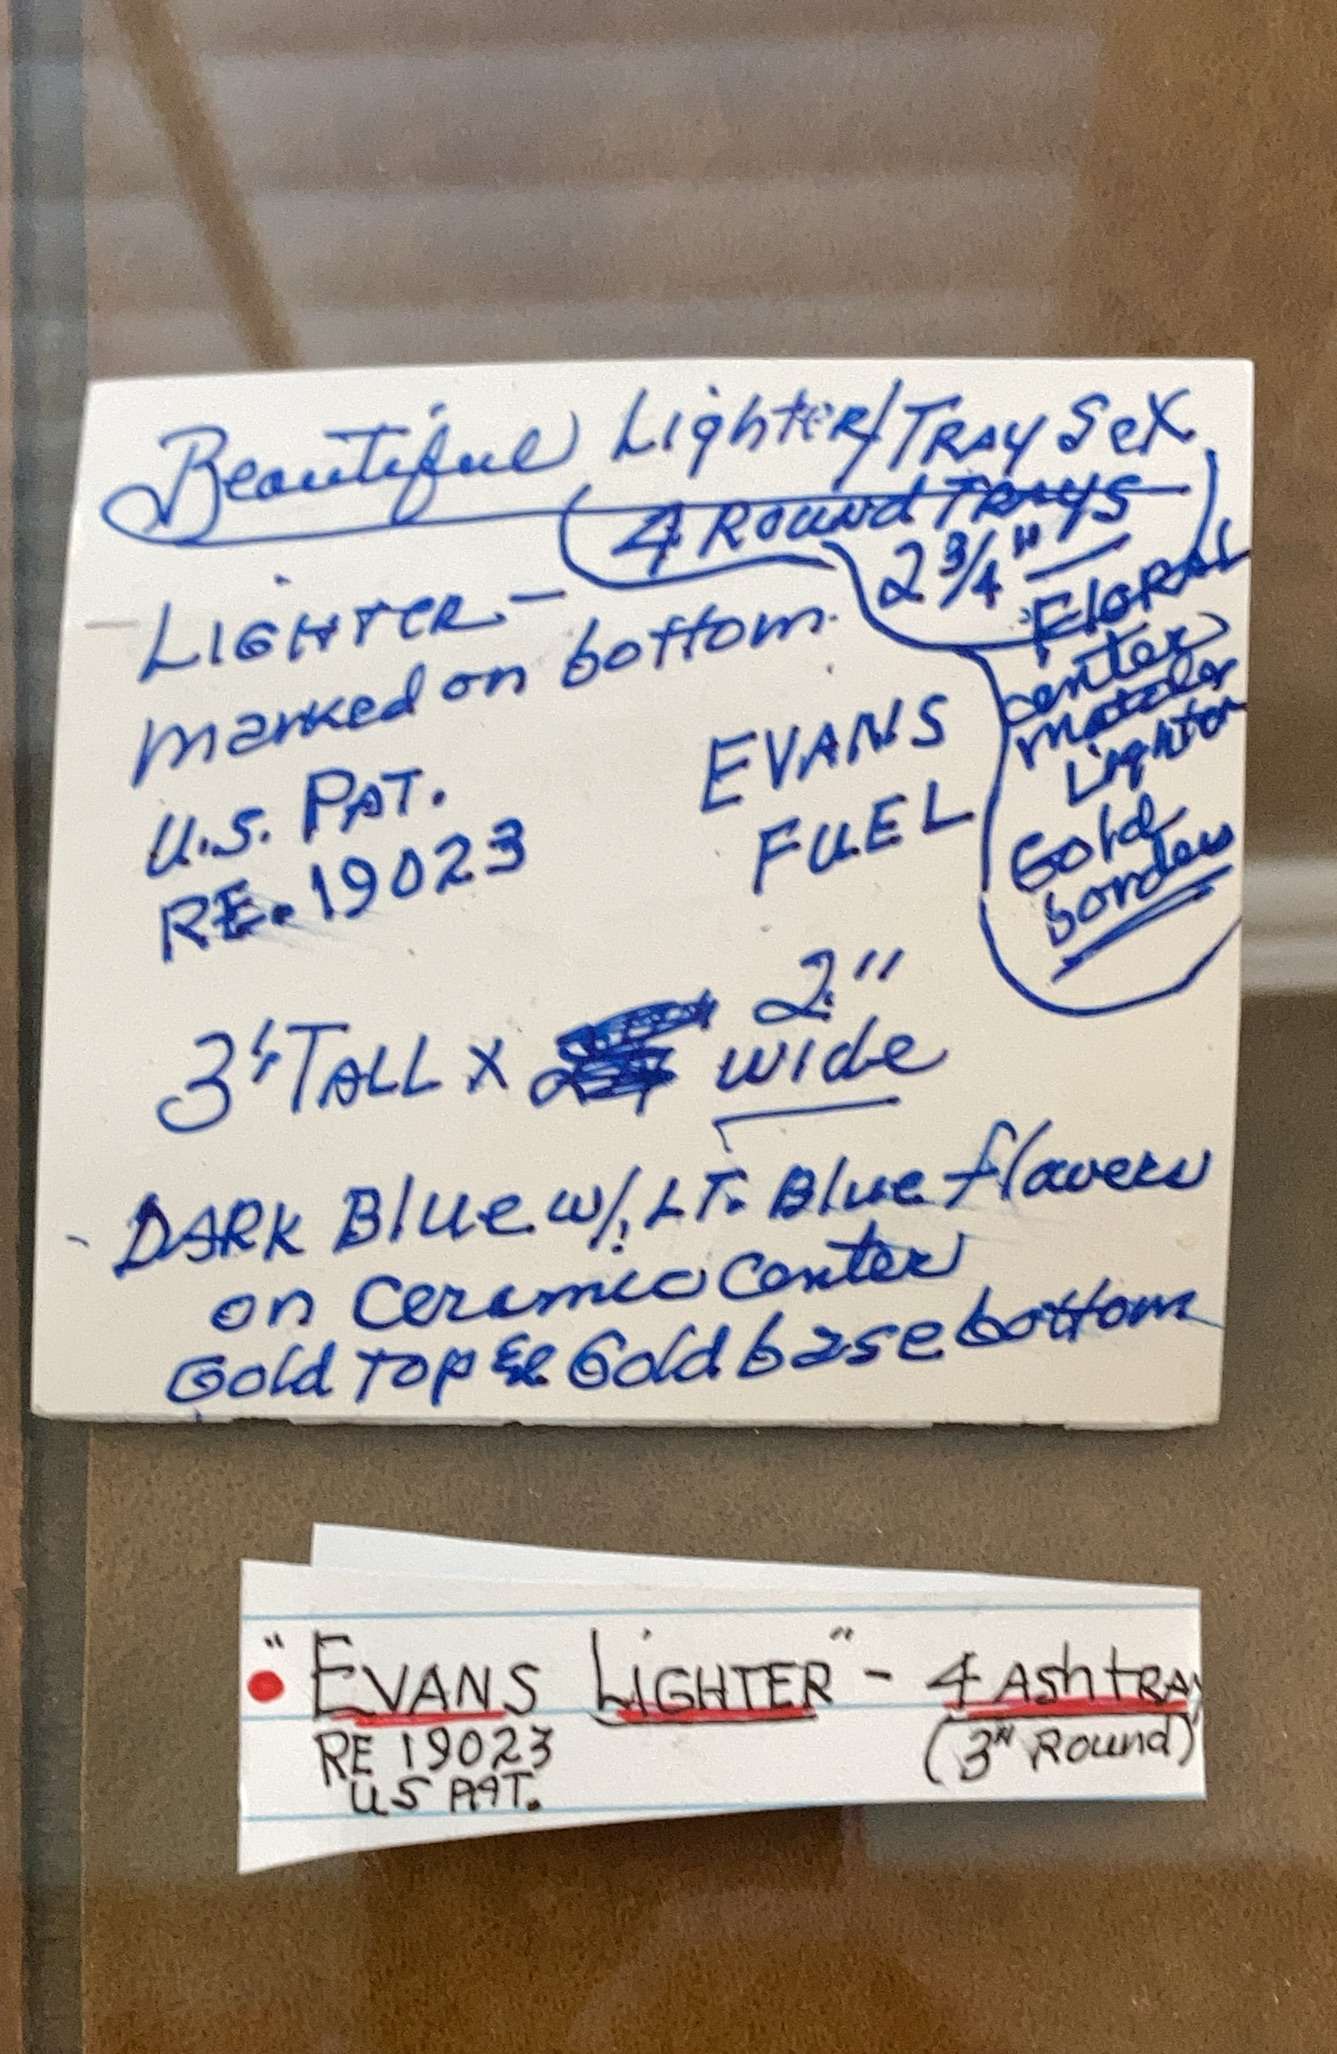 Beautiful Lighter/TRAY Set
4 Round TRAYS
2 3/4"
FLORAL
center
matches
Lighter
Gold
borders
LIGHTER -
marked on bottom
U.S. PAT.
RE. 19023
EVANS
FUEL
3" TALL x 2"
wide
DARK Blue w/ LT. Blue flowers
on ceramic center
Gold TOP & Gold base bottom
"EVANS LIGHTER" - 4 AshtRAy
RE 19023
US PAT.
(3" Round)